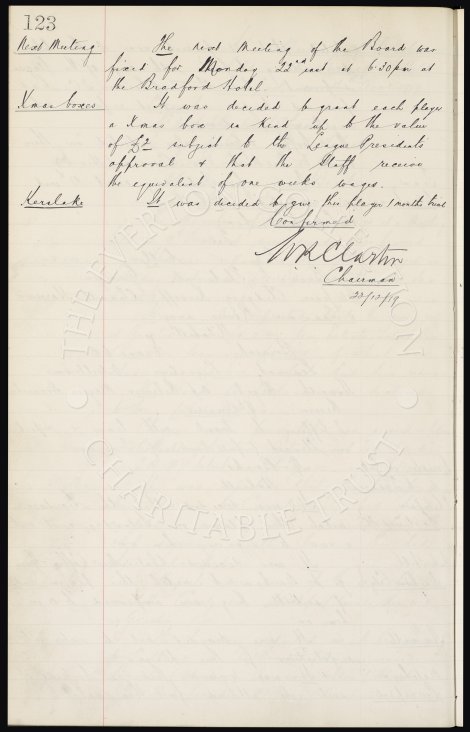 123
Next Meeting
The next meeting of the Board was
fixed for Monday 22nd inst at 6.30pm at
the Bradford Hotel.
Xmas boxes
It was decided to grant each player
a Xmas box in kind up to the value
of £2 subject to the League President's
approval & that the Staff receive
the equivalent of one weeks wages.
Kerslake
It was decided to give this player 1 months trial
Confirmed
W R Clayton
Chairman
22/12/19
THE EVERTON COLLECTION
CHARITABLE TRUST